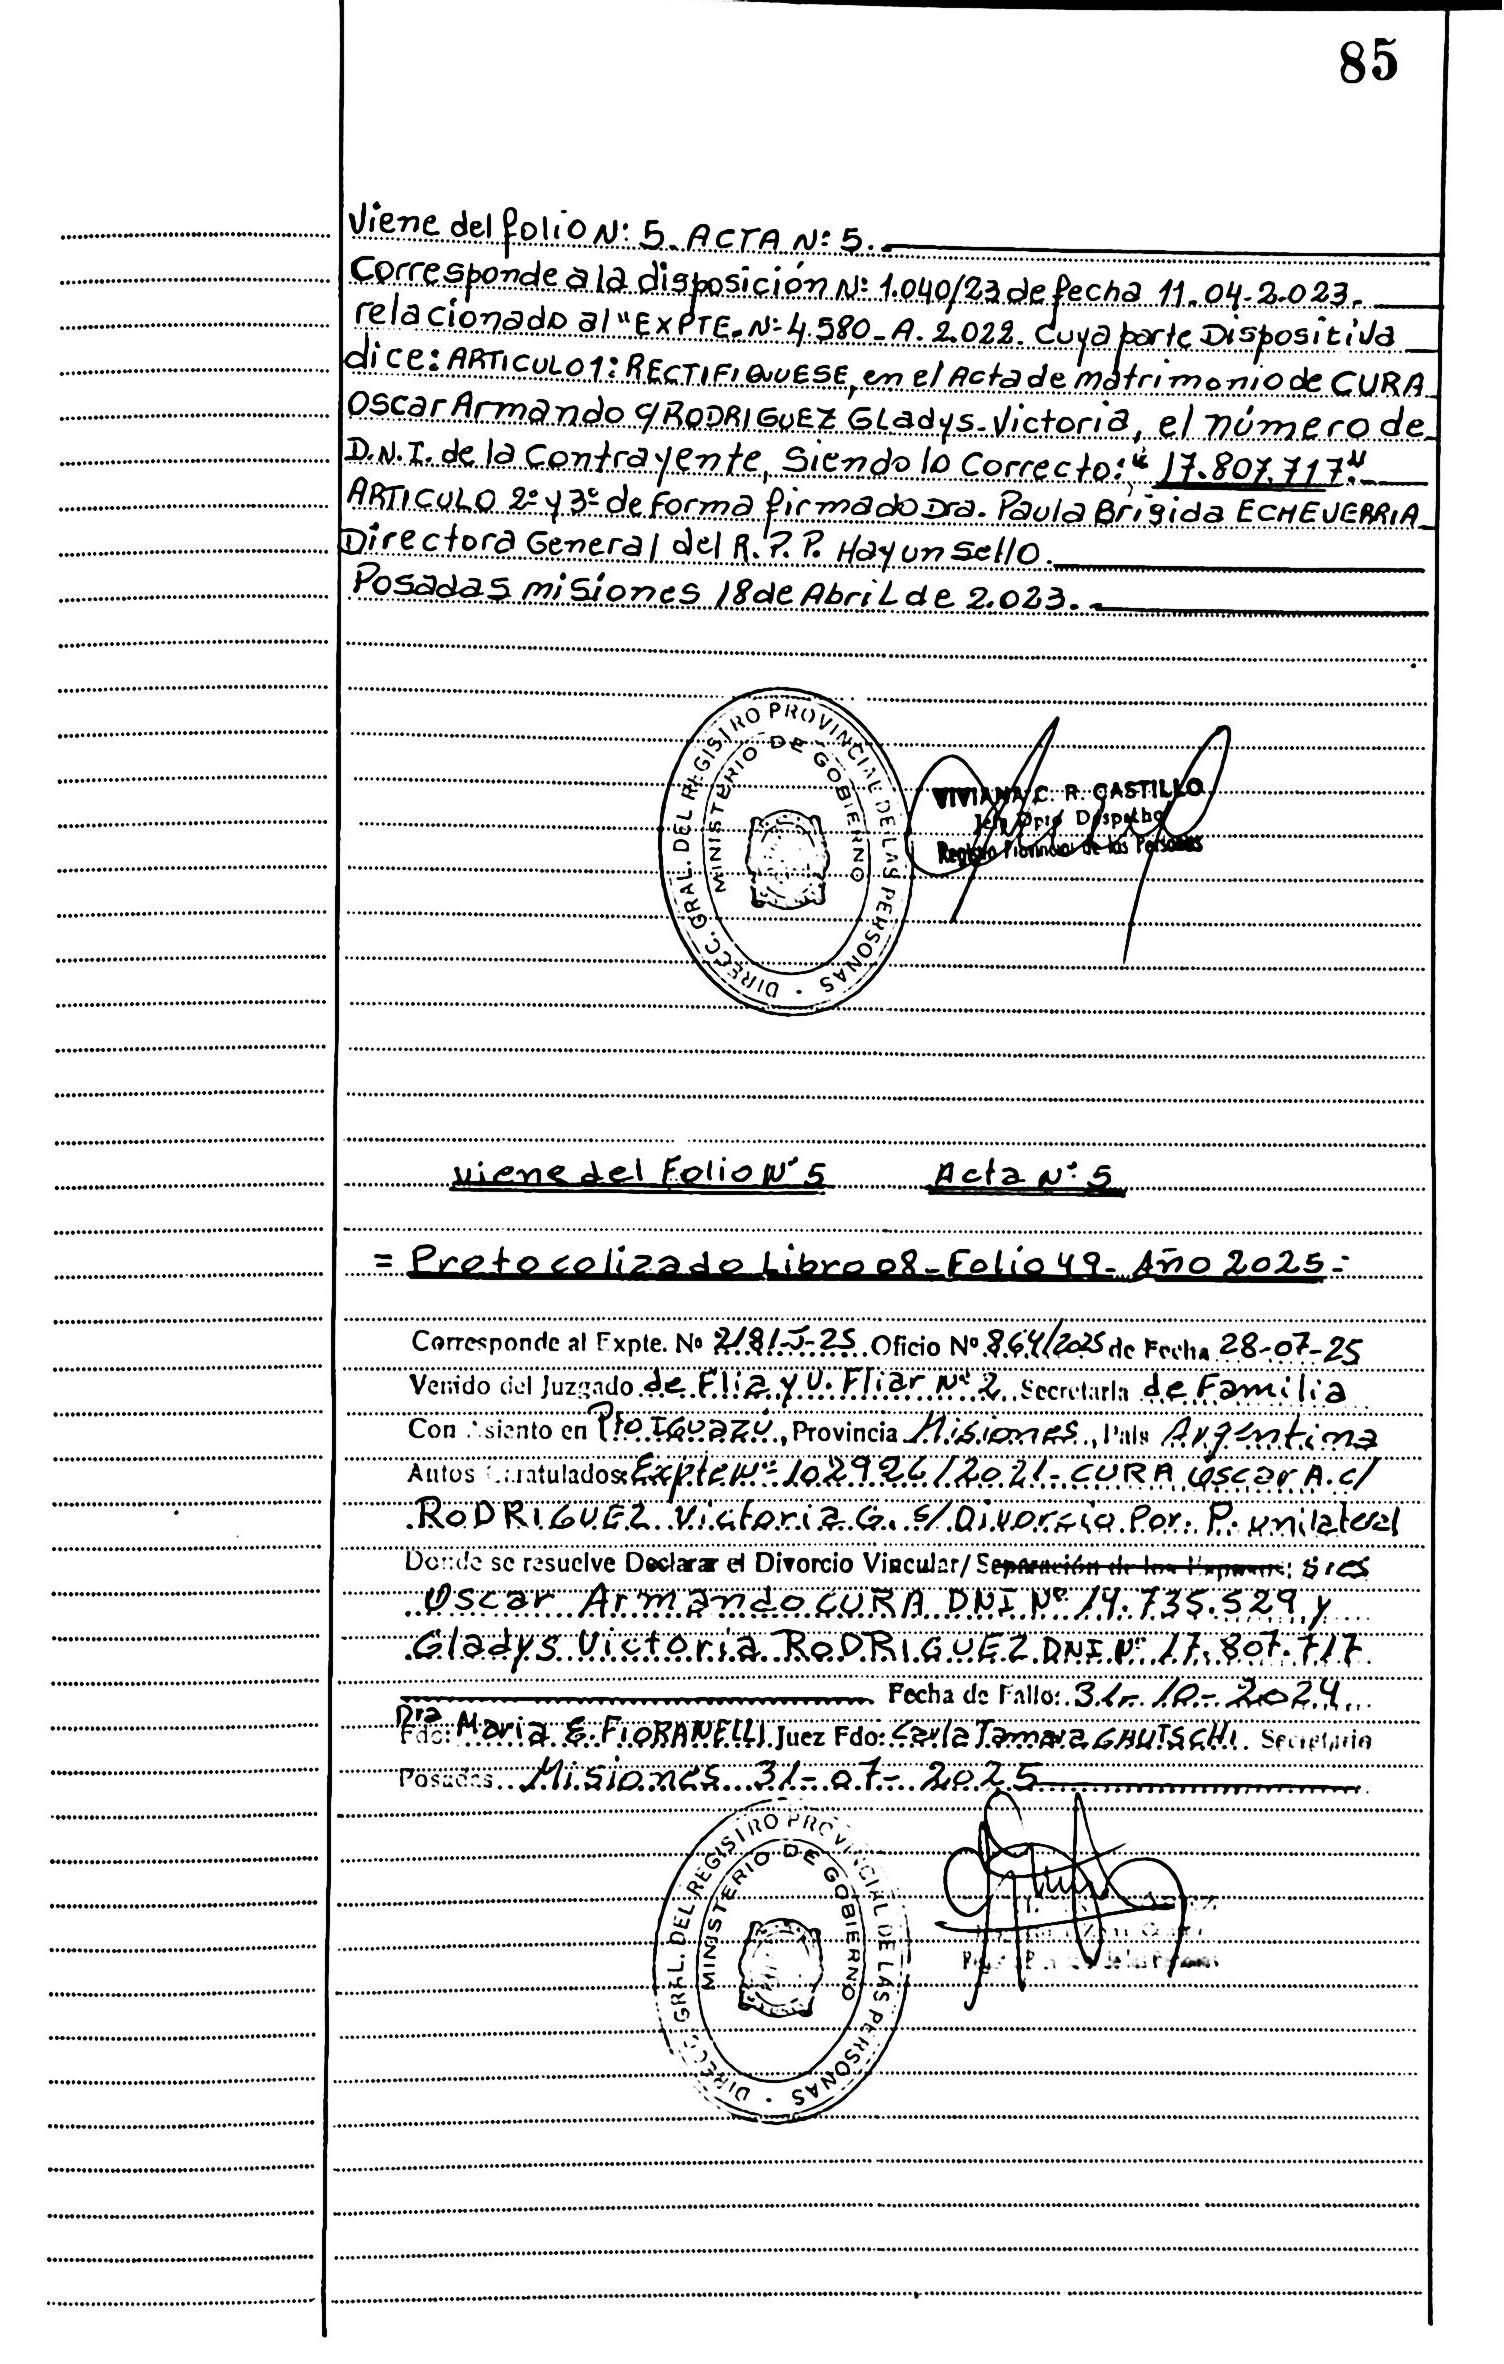 85
Viene del folio Nº 5. ACTA Nº 5.
Corresponde a la disposición Nº 1.040/23 de fecha 11.04.2.023.
relacionado al "EXPTE. Nº 4.580-A.2.022. Cuya parte Dispositiva
dice: ARTICULO 1: RECTIFIQUESE, en el Acta de matrimonio de CURA
Oscar Armando c/ RODRIGUEZ Gladys Victoria, el número de
D.N.I. de la Contrayente, Siendo lo Correcto: "17.807.717"
ARTICULO 2º y 3º de forma firmado Dra. Paula Brigida ECHEVERRIA
Directora General del R.P.P. Hay un Sello.
Posadas misiones 18 de Abril de 2.023.
DIRECC. GRAL. DEL REGISTRO PROVINCIAL DE LAS PERSONAS
MINISTERIO DE GOBIERNO
VIVIANA C. R. CASTILLO
Despacho
Registro Provincial de las Personas
Viene del Folio Nº 5 Acta Nº 5
= Protocolizado Libro 08 - Folio 49 - Año 2025 =
Corresponde al Expte. Nº 2181-J-25 Oficio Nº 864/2025 de Fecha 28-07-25
Venido del Juzgado de Flia y V. Fliar Nº 2 Secretaría de Familia
Con Asiento en Pto IGuazú, Provincia Misiones, País Argentina
Autos Caratulados: Expte Nº 102926/2021 - CURA Oscar A. c/
RODRIGUEZ Victoria G. s/ Divorcio Por P. unilateral
Donde se resuelve Declarar el Divorcio Vincular/ Separación de los Esposos: Sres
Oscar Armando CURA DNI Nº 14.735.529 y
Gladys Victoria RODRIGUEZ DNI Nº 17.807.717
Fecha de Fallo: 31-10-2024
Fdo: Dra Maria E. FIORANELLI Juez Fdo: Carla Tamara GAUTSCHI Secretario
Posadas Misiones 31-07-2025
DIRECC. GRAL. DEL REGISTRO PROVINCIAL DE LAS PERSONAS
MINISTERIO DE GOBIERNO
de las Personas